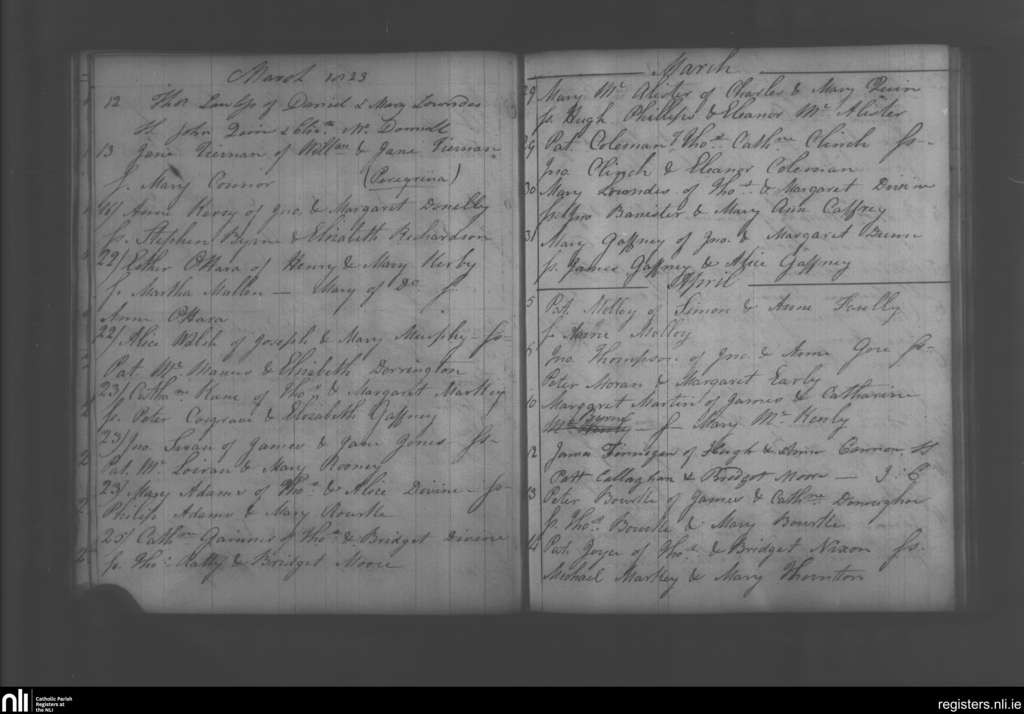 March 1823
12 Thos Lawless of Daniel & Mary Lowndes
Ss John Dunn & Elizth Mc Donnell
13 Jane Tiernan of Willm & Jane Tiernan
s. Mary Connor (Peregrina)
16/ Anne Kersy of Jno. & Margaret Donelly
ss. Stephen Byrne & Elisabeth Richardson
22/ Esther O'Hara of Henry & Mary Kerby
s. Martha Mallen — Mary of Do s.
Anne O'Hara
22/ Alice Walsh of Joseph & Mary Murphy - Ss-
Pat. Mc Manus & Elisabeth Dorrington
23/ Cathn Kane of Thos & Margaret Markey
ss. Peter Cosgrave & Elisabeth Gaffney
23/ Jno Swan of James & Jane Jones - Ss-
Pat. Mc & Mary Rooney
23/ Mary Adams of Thos & Alice Divine - ss-
Philip Adams & Mary Rourke
25/ Cathn of Thos & Bridget Divine
ss. Thos Ratty & Bridget Moore
March
29 Mary Mc Alister of Charles & Mary Quin
ss. Hugh Phillips & Eleanor Mc Alister
29 Pat. Coleman of Thos. Cathn Clinch Ss-
Jno. Clinch & Eleanor Coleman
30 Mary Lowndes of Thos & Margaret Divin
ss. Jno Banister & Mary Ann Caffrey
31 Mary Gaffney of Jno. & Margaret Dunn
ss. James Gaffney & Alice Gaffney
April
5 Patt. Molloy of Simon & Anne
s. Anne Molloy
Jno. Thompson of Jno & Anne Gore Ss-
Peter Moran & Margaret Early
10 Margaret Martin of James & Catharine
Byrne — s Mary Mc Kenly
12 James Finnegan of Hugh & Anne Connor Ss
Patt Callaghan & Bridget Moore — J: C
13 Peter Bourke of James & Cathne
ss. Thos. Bourke & Mary Bourke
14 Pat. Joyce of Thos & Bridget Nixon Ss.
Michael Markey & Mary Thornton
nli
Catholic Parish
Registers at
the NLI
registers.nli.ie